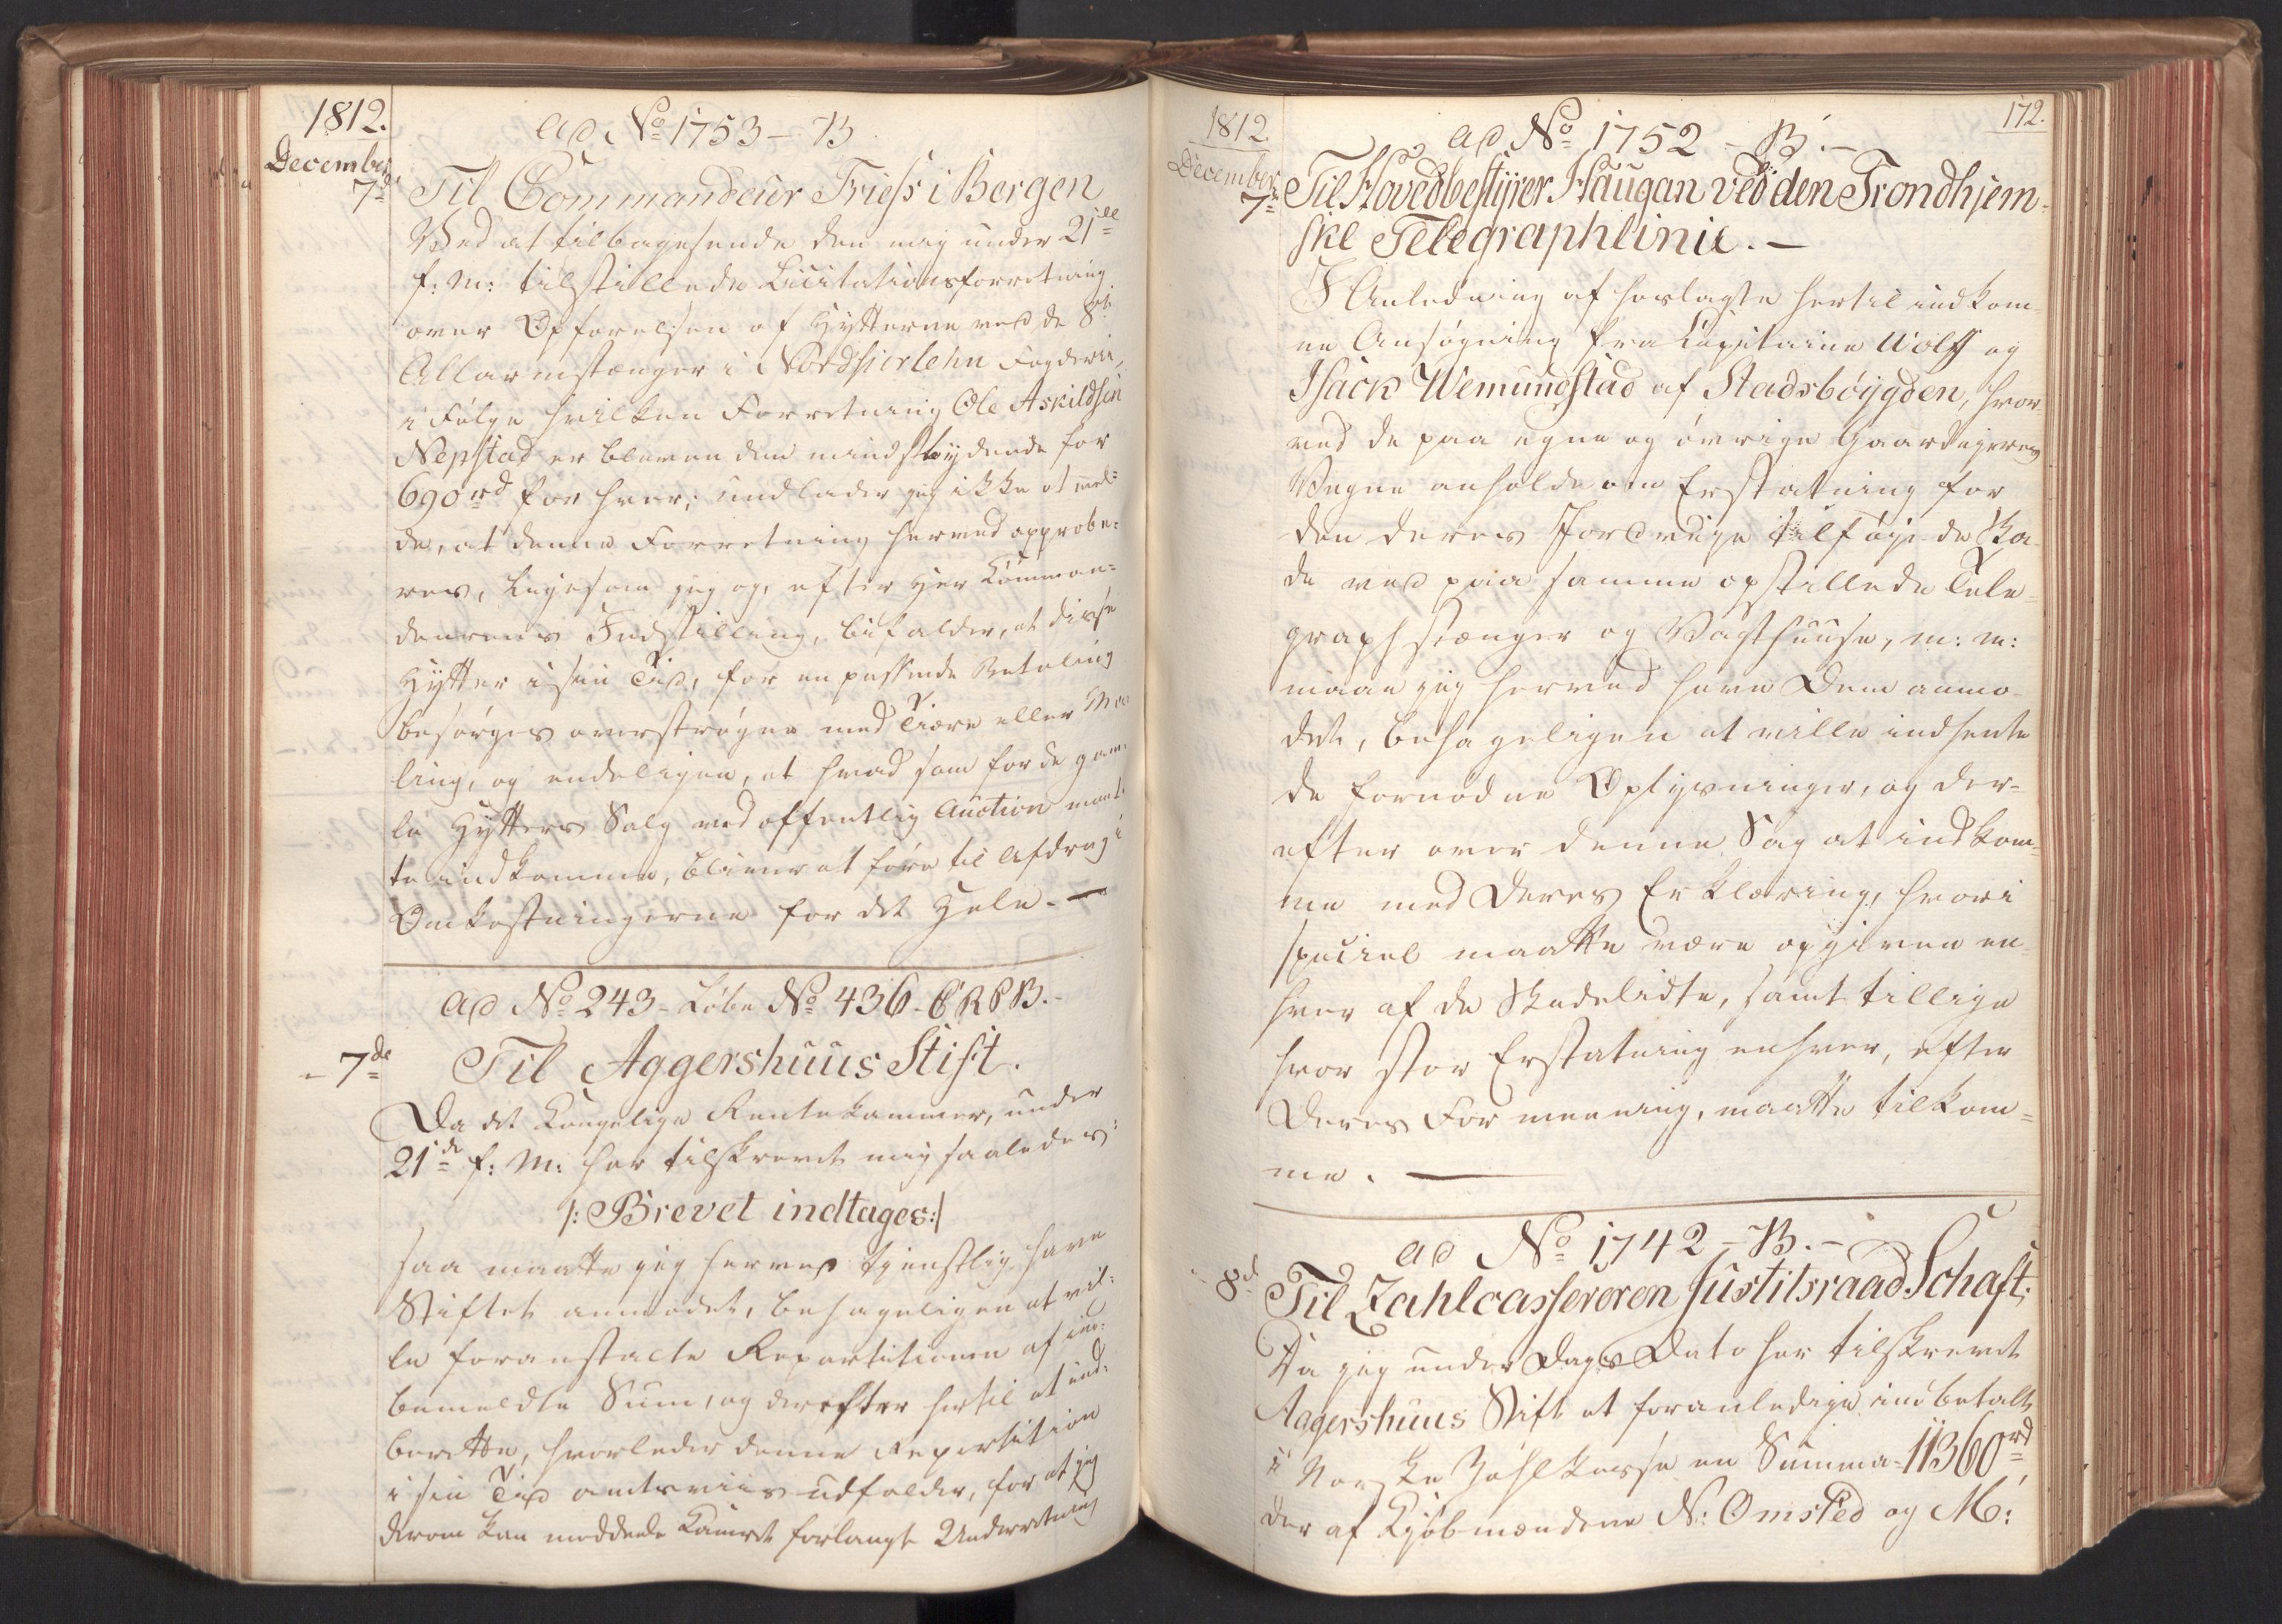 1812.
December
7de
ad No 1753 - B
Til Commandeur Friess i Bergen
Ved at tilbagesende den mig under 21de
f: M: tilstillede Licitationsforretning
over Opførelsen af Hytterne ved de 8te
Allarmstænger i Nordhorlehn Fogderie,
i Følge hvilken Forretning Ole Askildsen
Nepstad er bleven den mindstbydende for
690 rd for hver; undlader jeg ikke at mel=
de, at denne Forretning herved approbe=
res, ligesom jeg og, efter Herr Komman=
deurens Indstilling, bifalder, at disse
Hytter i sin Tid, for en passende Betaling
besørges overstrøgne med Tiære eller Ma=
ling, og endeligen, at hvad som for de gam=
le Hytters Salg ved offentlig Auction maat=
te indkomme, bliver at føre til Afdrag i
Omkostningerne for det Hele. —
ad No 243 - Løbe No 436 - C R P B. -
- 7de
Til Aggershuus Stift.
Da det Kongelige Rentekammer, under
21de f: M: har tilskrevet mig saaledes:
/: Brevet indtages :/
saa maatte jeg herved tjenstlig have
Stiftet anmodet, behageligen at vil=
le foranstalte Repartitionen af om=
bemeldte Sum, og derefter hertil at ind=
berette, hvorledes denne Repartition
i sin Tid amtsviis udfalder, for at jeg
derom kan meddeele Kamret forlangte Underretning
172.
1812.
December
7de
ad No 1752 - B. -
Til Hovedbestyrer Haugan ved den Trondhjem-
ske Telegraphlinie. —
I Anledning af hoslagte hertil indkom-
ne Ansøgning fra Capitaine Wolff og
Isack Wemundstad af Stadsbøygden, hvor-
ved de paa egne og øvrige Gaardejeres
Vegne anholde om Erstatning for
den deres Jordveye tilføjede Ska-
de ved paa samme opstillede Tele-
graphstænger og Vagthuuse, m: m:
maae jeg herved have Dem anmo-
det, behageligen at ville indhente
de fornødne Oplysninger, og der-
efter over denne Sag at indkom-
me med Deres Erklæring, hvori
speciel maatte være opgiven en-
hver af de Skadelidte, samt tillige
hvor stor Erstatning enhver, efter
Deres Formeening, maatte tilkom=
me. —
ad No 1742 - B. -
- 8de
Til Zahlcassereren Justitsraad Schaft.
Da jeg under Dags Dato har tilskrevet
Aggershuus Stift at foranledige indbetalt
i Norske Zahlkasse en Summa 11360 rd,
der af Kjøbmændene N: Omsted og M: